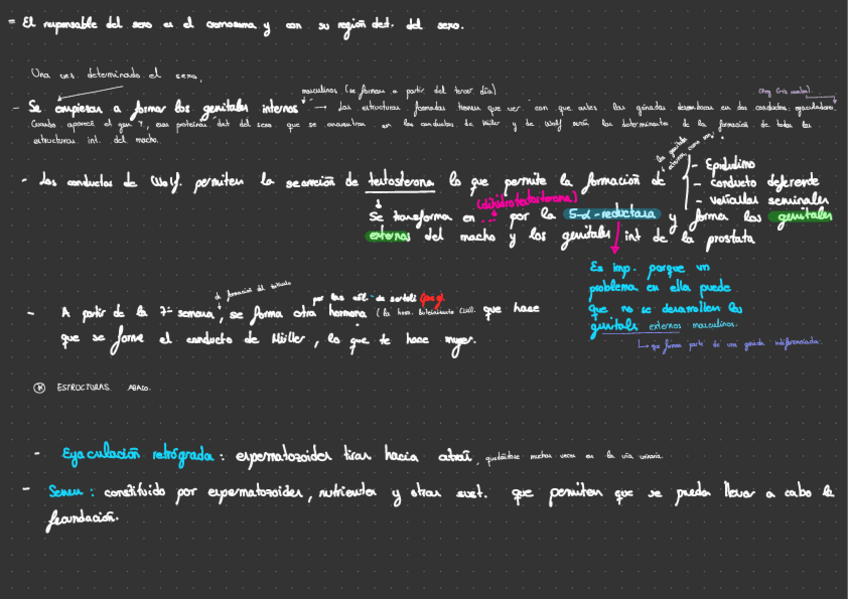 - El responsable del sexo es el cromosoma y con su región det. del sexo.
Una vez determinado el sexo,
masculinos (se forman a partir del tercer día)
- Se empiezan a formar los genitales internos → Las estructuras formadas tienen que ver con que antes las gónadas desembocan en dos conductos
Cuando aparece el gen Y, esas proteínas det del sexo que se encuentran en los conductos de Müller y de Wolf serán las determinantes de la formación de todas las
estructuras int. del macho.
- Los conductos de Wolf. permiten la secreción de testosterona lo que permite la formación de
- Epidídimo
- conducto deferente
- vesículas seminales
(dihidrotestosterona)
Se transforma en ... por la 5-α-reductasa y forman los genitales
externos del macho y los genitales int de la prostata
Es imp. porque un
problema en ella puede
que no se desarrollen los
genitals externos masculinos.
↳ que forma parte de una gónada indiferenciada.
la formación del testículo
por las cél. de sertoli
- A partir de la 7ª semana, se forma otra hormona que hace
que se forme el conducto de Müller, lo que te hace mujer.
ESTRUCTURAS ABAJO.
- Eyaculación retrógrada: espermatozoides tiran hacia atrás, quedándose muchas veces en la vía urinaria.
- Semen: constituido por espermatozoides, nutrientes y otras sust. que permiten que se pueda llevar a cabo la
fecundación.